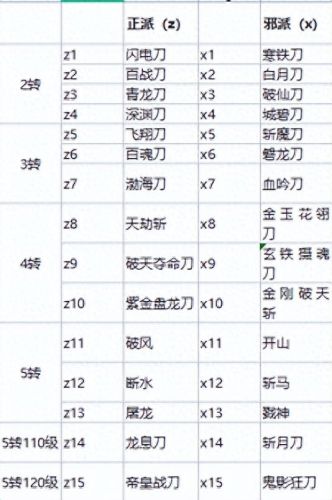 正派（z） 邪派（x）
2转
z1 闪电刀 x1 寒铁刀
z2 百战刀 x2 白月刀
z3 青龙刀 x3 破仙刀
z4 深渊刀 x4 城碧刀
3转
z5 飞翔刀 x5 斩魔刀
z6 百魂刀 x6 磐龙刀
z7 渤海刀 x7 血吟刀
4转
z8 天劫斩 x8 金玉花翎刀
z9 破天夺命刀 x9 玄铁摄魂刀
z10 紫金盘龙刀 x10 金刚破天斩
5转
z11 破风 x11 开山
z12 断水 x12 斩马
z13 屠龙 x13 戮神
5转110级 z14 龙息刀 x14 斩月刀
5转120级 z15 帝皇战刀 x15 鬼影狂刀